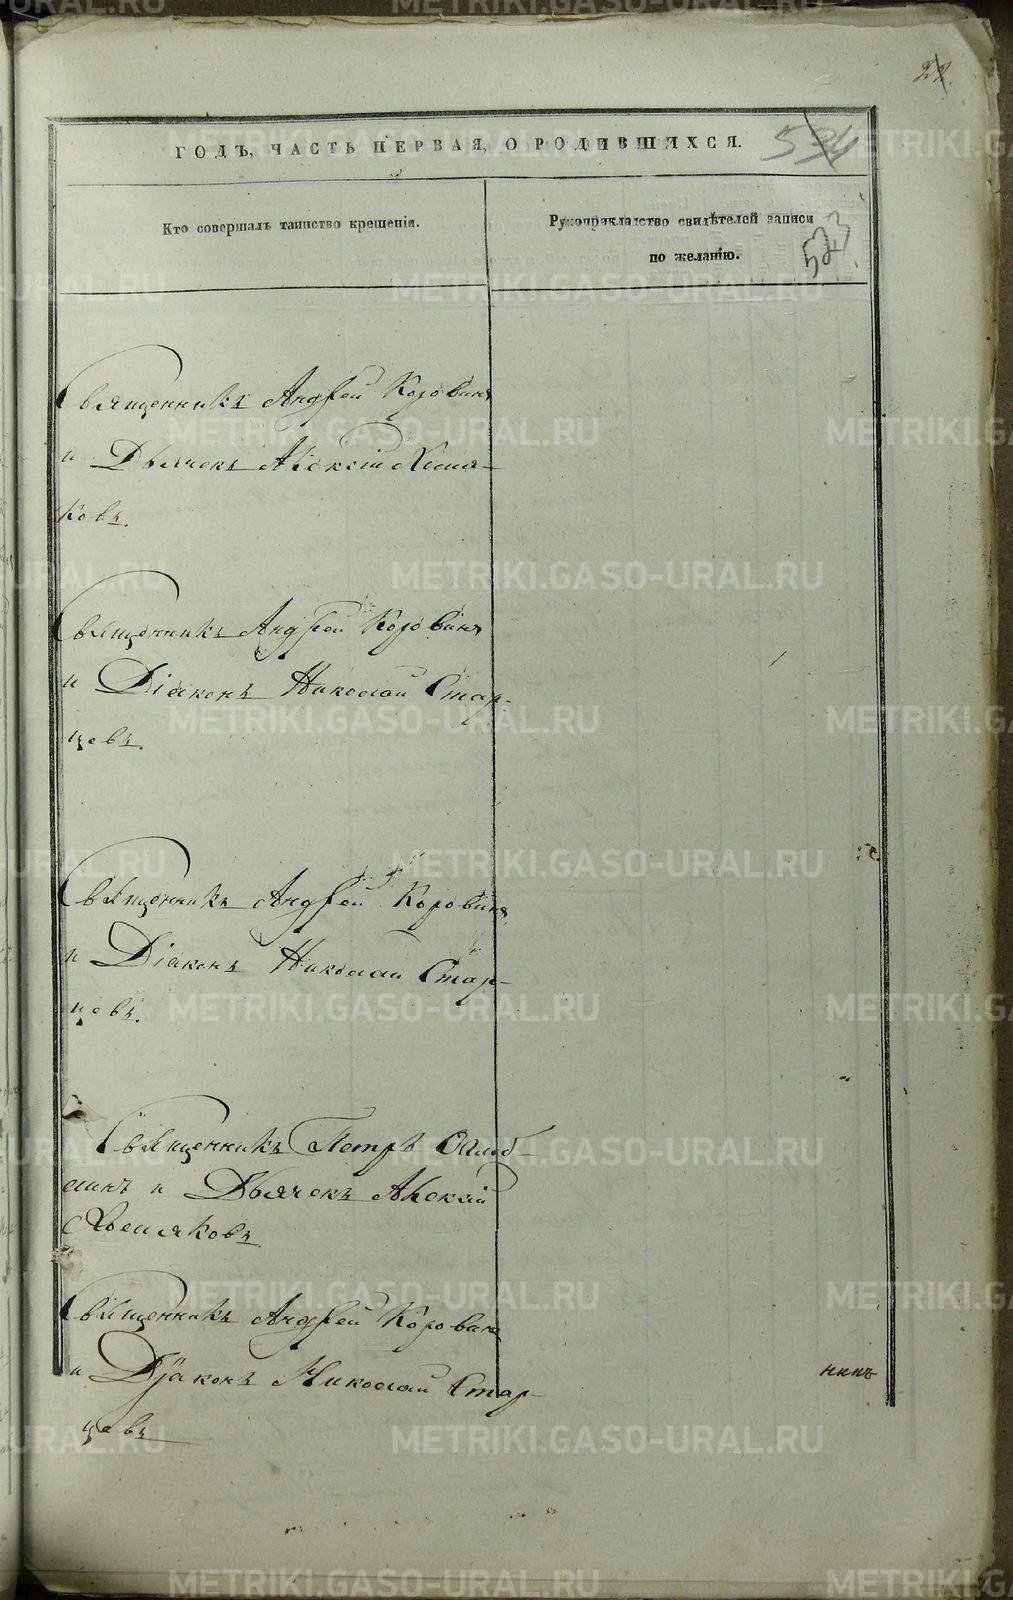 ГОДЪ, ЧАСТЬ ПЕРВАЯ, О РОДИВШИХСЯ.
Кто совершалъ таинство крещенія.
Рукоприкладство свидѣтелей записи
по желанію.
523
Священникъ Андрей Коровинъ
и Дьячекъ Алексѣй Хомя-
ковъ.
Священникъ Андрей Коровинъ
и Діаконъ Николай Стар-
цевъ.
Священникъ Андрей Коровинъ
и Діаконъ Николай Стар-
цевъ.
Священникъ Петръ
и Дьячекъ Алексѣй
Хомяковъ
Священникъ Андрей Коровинъ
и Діаконъ Николай Стар-
цевъ
METRIKI.GASO-URAL.RU